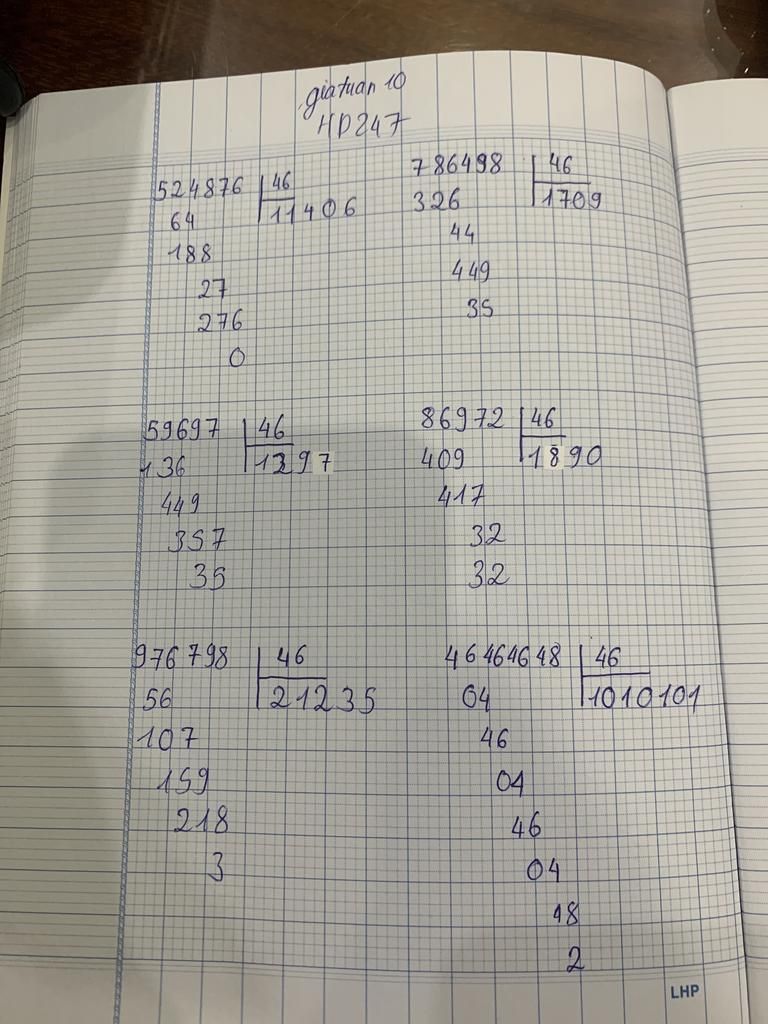 giatuan 10
HD247
524876 46
64 11406
188
27
276
0
786498 46
326 1709
44
449
35
59697 46
136 1297
449
357
35
86972 46
409 1890
417
32
32
976798 46
56 21235
107
159
218
3
46464648 46
04 1010101
46
04
46
04
48
2
LHP